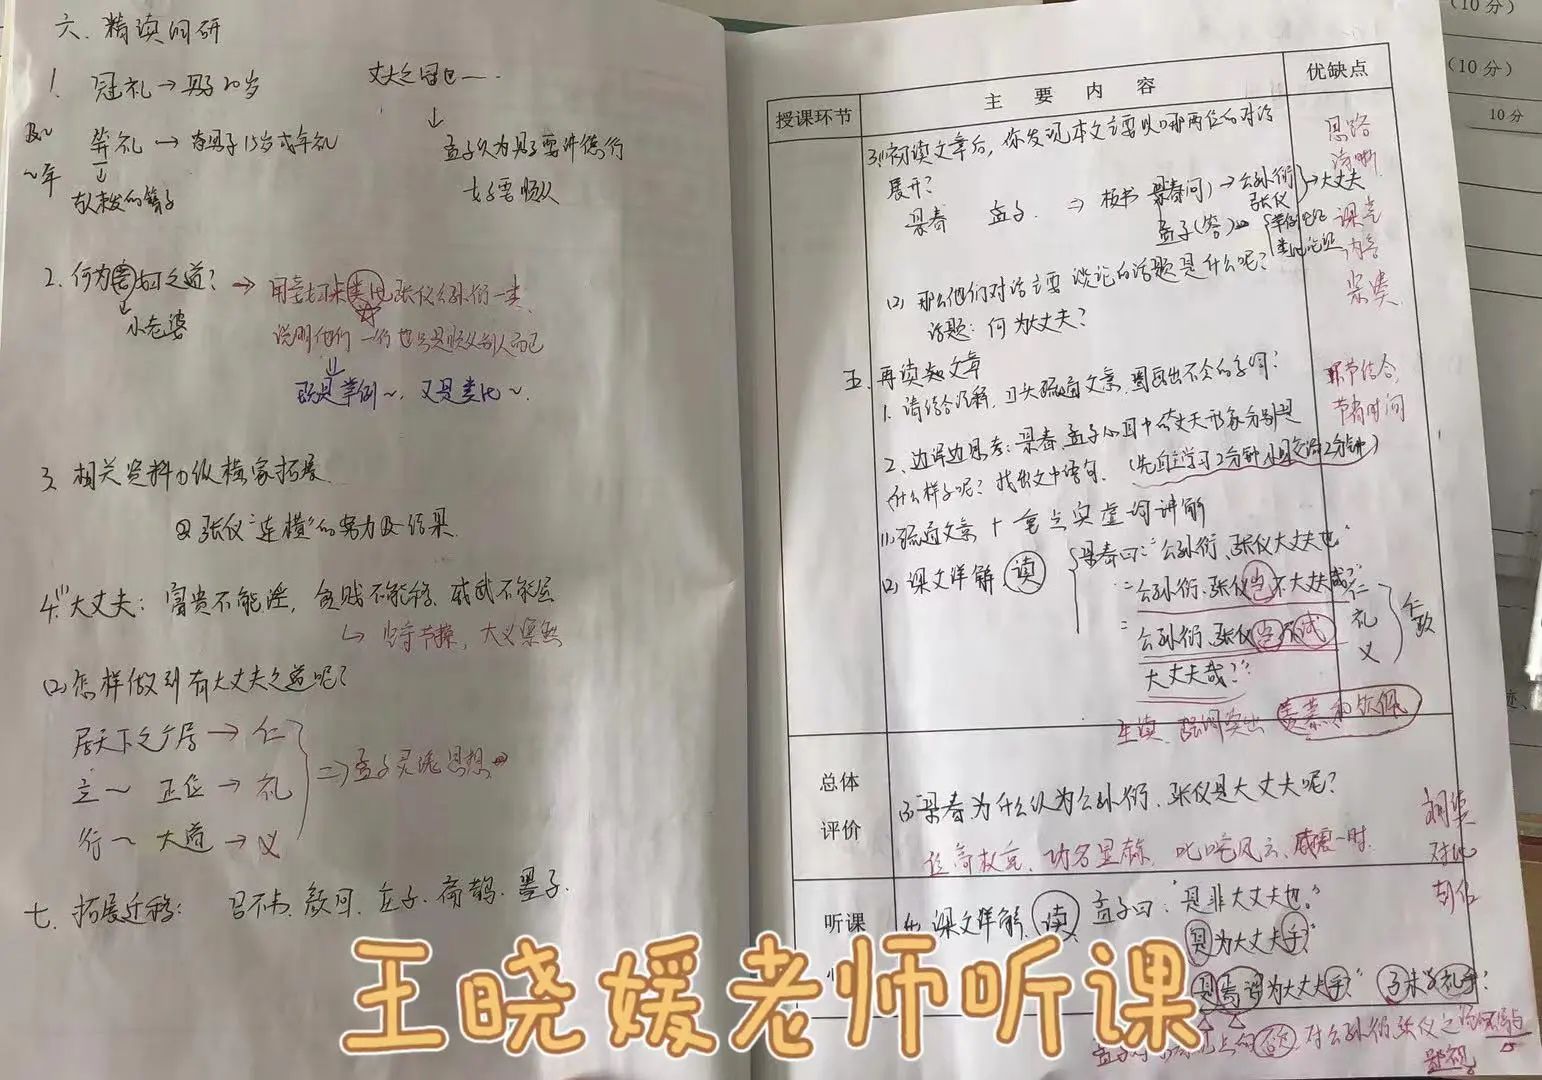 六、精读问研
1. 冠礼→男子20岁
笄礼→古男子15岁成年礼
↓
束发的簪子
丈夫之冠也——
↓
孟子认为男子要讲德行
女子要顺从
2. 何为妾妇之道?
小老婆
→用妾妇来类比张仪公孙衍一类、
说明他们一行也只是顺从别人而已
既是举例~、又是类比~、
3. 相关资料①纵横家拓展
②张仪"连横"的努力及结果
4.⑴大丈夫:富贵不能淫,贫贱不能移、威武不能屈
↳坚守节操,大义凛然
⑵怎样做到有大丈夫之道呢?
居天下之广居→仁
立~正位→礼
行~大道→义
⇒孟子灵魂思想
七、拓展迁移:吕不韦、颜回、孟子、扁鹊、墨子.
授课环节
主要内容
优缺点
3.⑴初读文章后,你发现本文主要以哪两位的对话
展开?
景春 孟子. ⇒板书 景春(问)→公孙衍
张仪
→大丈夫
孟子(答)
举例论证
类比论证
⑵那么他们对话主要谈论的话题是什么呢?
话题:何为大丈夫?
思路
清晰
课堂
内容
紧凑
五、再读知文章
1. 请结合注释,口头疏通文意,圈画出不会的字词?
2、边译边思考:景春、孟子心目中大丈夫形象分别是
什么样子呢?找出文中语句.(先自主学习2分钟,小组交流2分钟)
环节结合,
节省时间
⑴疏通文意+重点实虚词讲解
⑵课文详解 读
景春曰:"公孙衍、张仪大丈夫也"
=公孙衍、张仪岂不大丈夫哉?
=公孙衍、张仪岂不诚
大丈夫哉?"
仁
礼
义
生读、强调突出 羡慕和钦佩
总体
评价
⑶景春为什么认为公孙衍、张仪是大丈夫呢?
位高权重、功名显赫、叱咤风云、威震一时.
对比
听课
⑷课文详解 读 孟子曰:"是非大丈夫也."
是为大丈夫乎"
是焉得为大丈夫乎?" 子未学礼乎?
对公孙衍张仪之
鄙视
(10分)
(10分)
10分
王晓媛老师听课